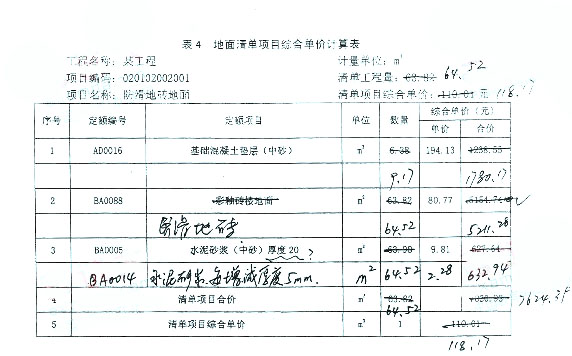 表4 地面清单项目综合单价计算表
工程名称：某工程 计量单位：m²
项目编码：020102002001 清单工程量：63.82 64.52
项目名称：防滑地砖地面 清单项目综合单价：110.01 元 118.17
序号 定额编号 定额项目 单位 数量 综合单价（元）
单价 合价
1 AD0016 基础混凝土垫层（中砂） m³ 6.38 194.13 1238.55
9.17 1780.17
2 BA0088 彩釉砖楼地面 m² 63.82 80.77 5154.74
防滑地砖 64.52 5211.28
3 BA0005 水泥砂浆（中砂）厚度20 ? m² 63.98 9.81 627.64
BA0014 水泥砂浆每增减厚度5mm. m² 64.52 2.28 632.94
4 清单项目合价 63.82 7020.93 7624.39
64.52
5 清单项目综合单价 1 110.01
118.17